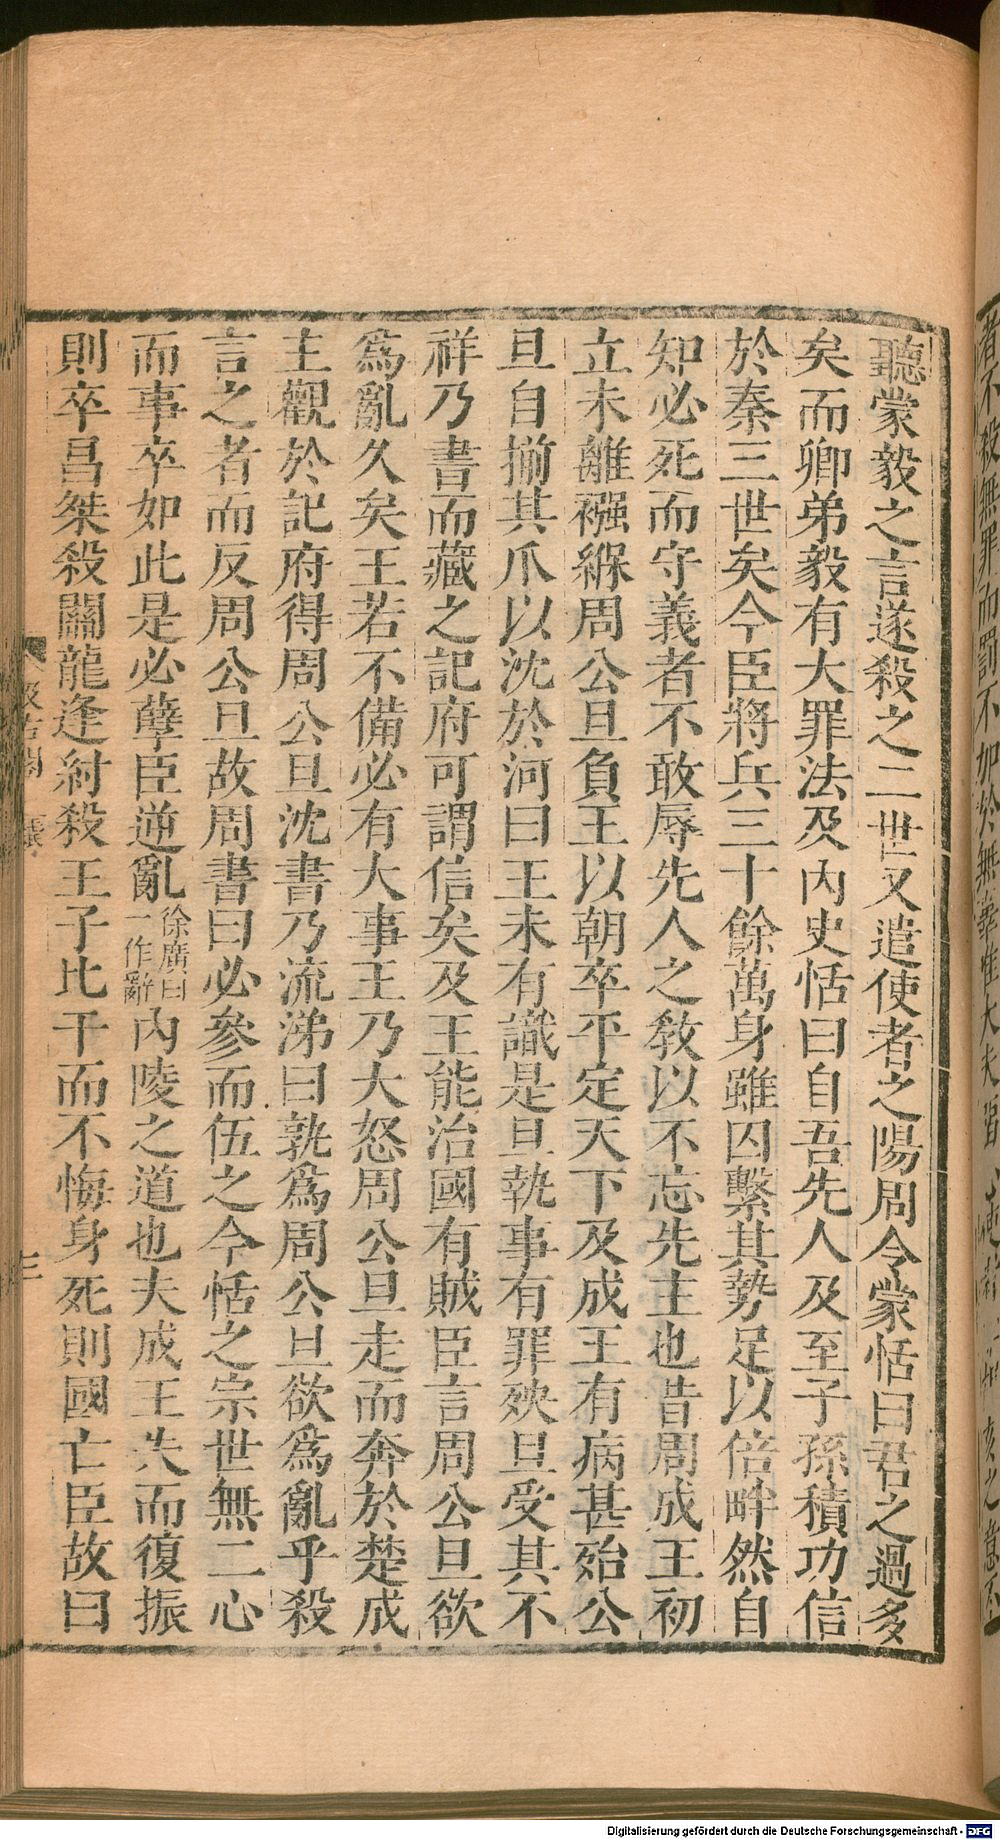 聽蒙毅之言遂殺之二世又遣使者之陽周令蒙恬曰君之過多
矣而卿弟毅有大罪法及內史恬曰自吾先人及至子孫積功信
於秦三世矣今臣將兵三十餘萬身雖囚繫其勢足以倍畔然自
知必死而守義者不敢辱先人之敎以不忘先主也昔周成王初
立未離襁緥周公旦負王以朝卒平定天下及成王有病甚殆公
旦自揃其爪以沈於河曰王未有識是旦執事有罪殃旦受其不
祥乃書而藏之記府可謂信矣及王能治國有賊臣言周公旦欲
爲亂久矣王若不備必有大事王乃大怒周公旦走而奔於楚成
王觀於記府得周公旦沈書乃流涕曰孰爲周公旦欲爲亂乎殺
言之者而反周公旦故周書曰必參而伍之今恬之宗世無二心
而事卒如此是必孽臣逆亂徐廣曰一作辭內陵之道也夫成王失而復振
則卒昌桀殺關龍逢紂殺王子比干而不悔身死則國亡臣故曰
三
Digitalisierung gefördert durch die Deutsche Forschungsgemeinschaft - DFG